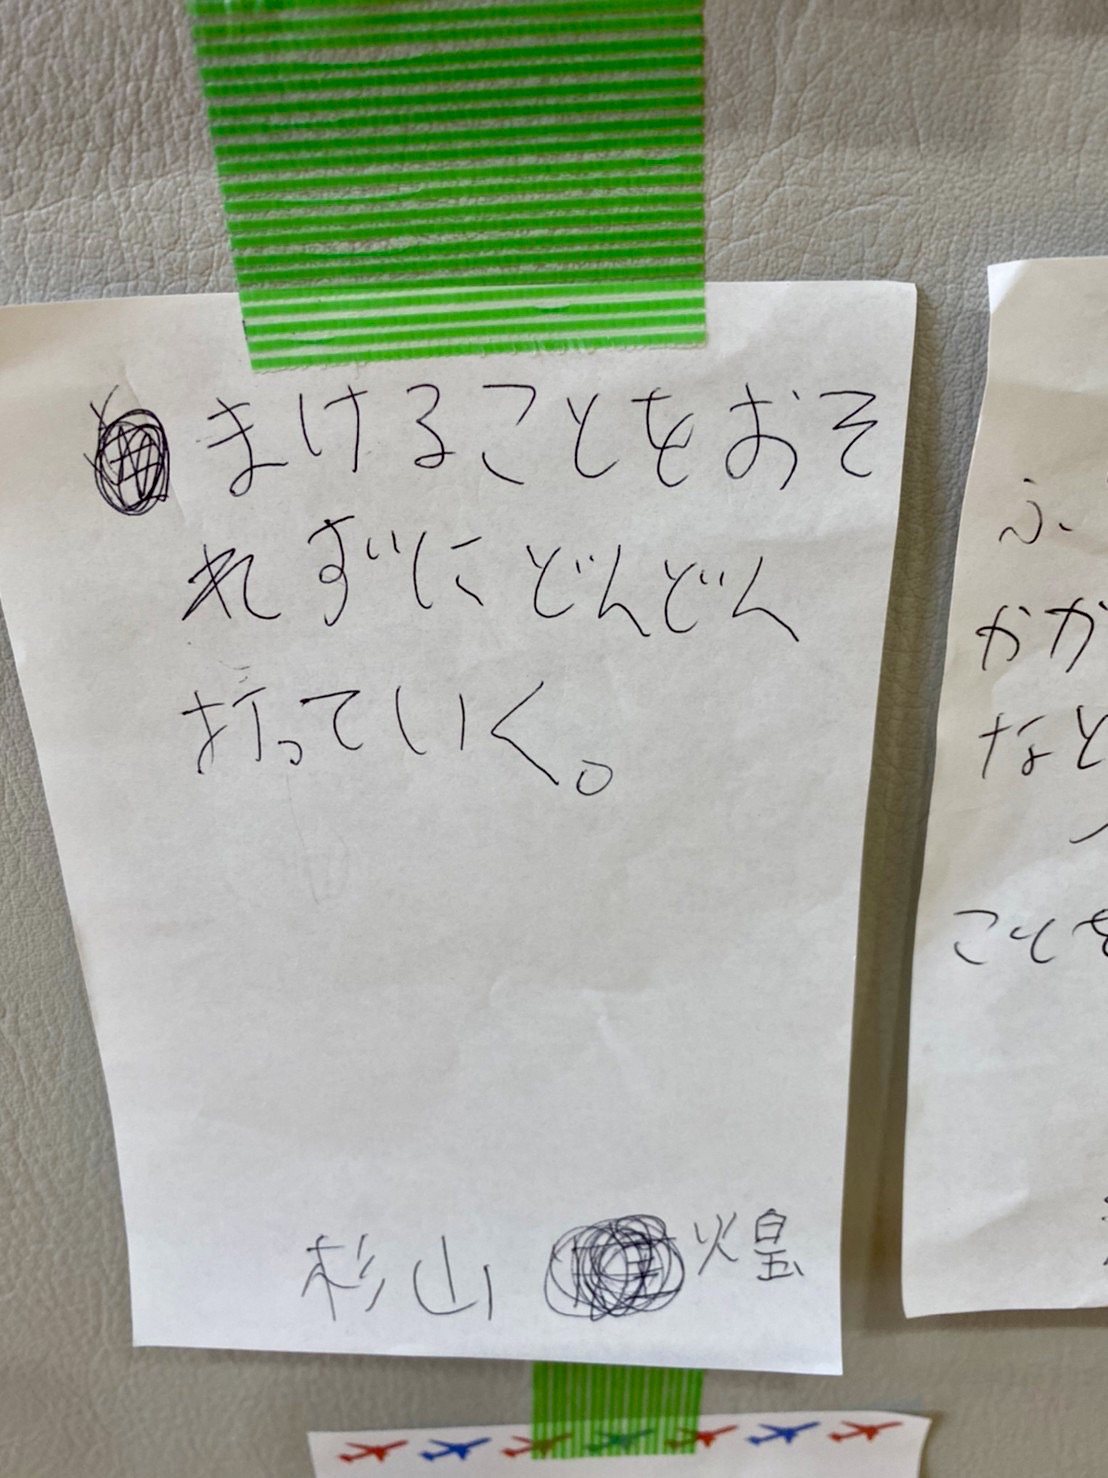 まけることをおそ
れずにどんどん
打っていく。
杉山 煌
ふ
かが
なと
ことを